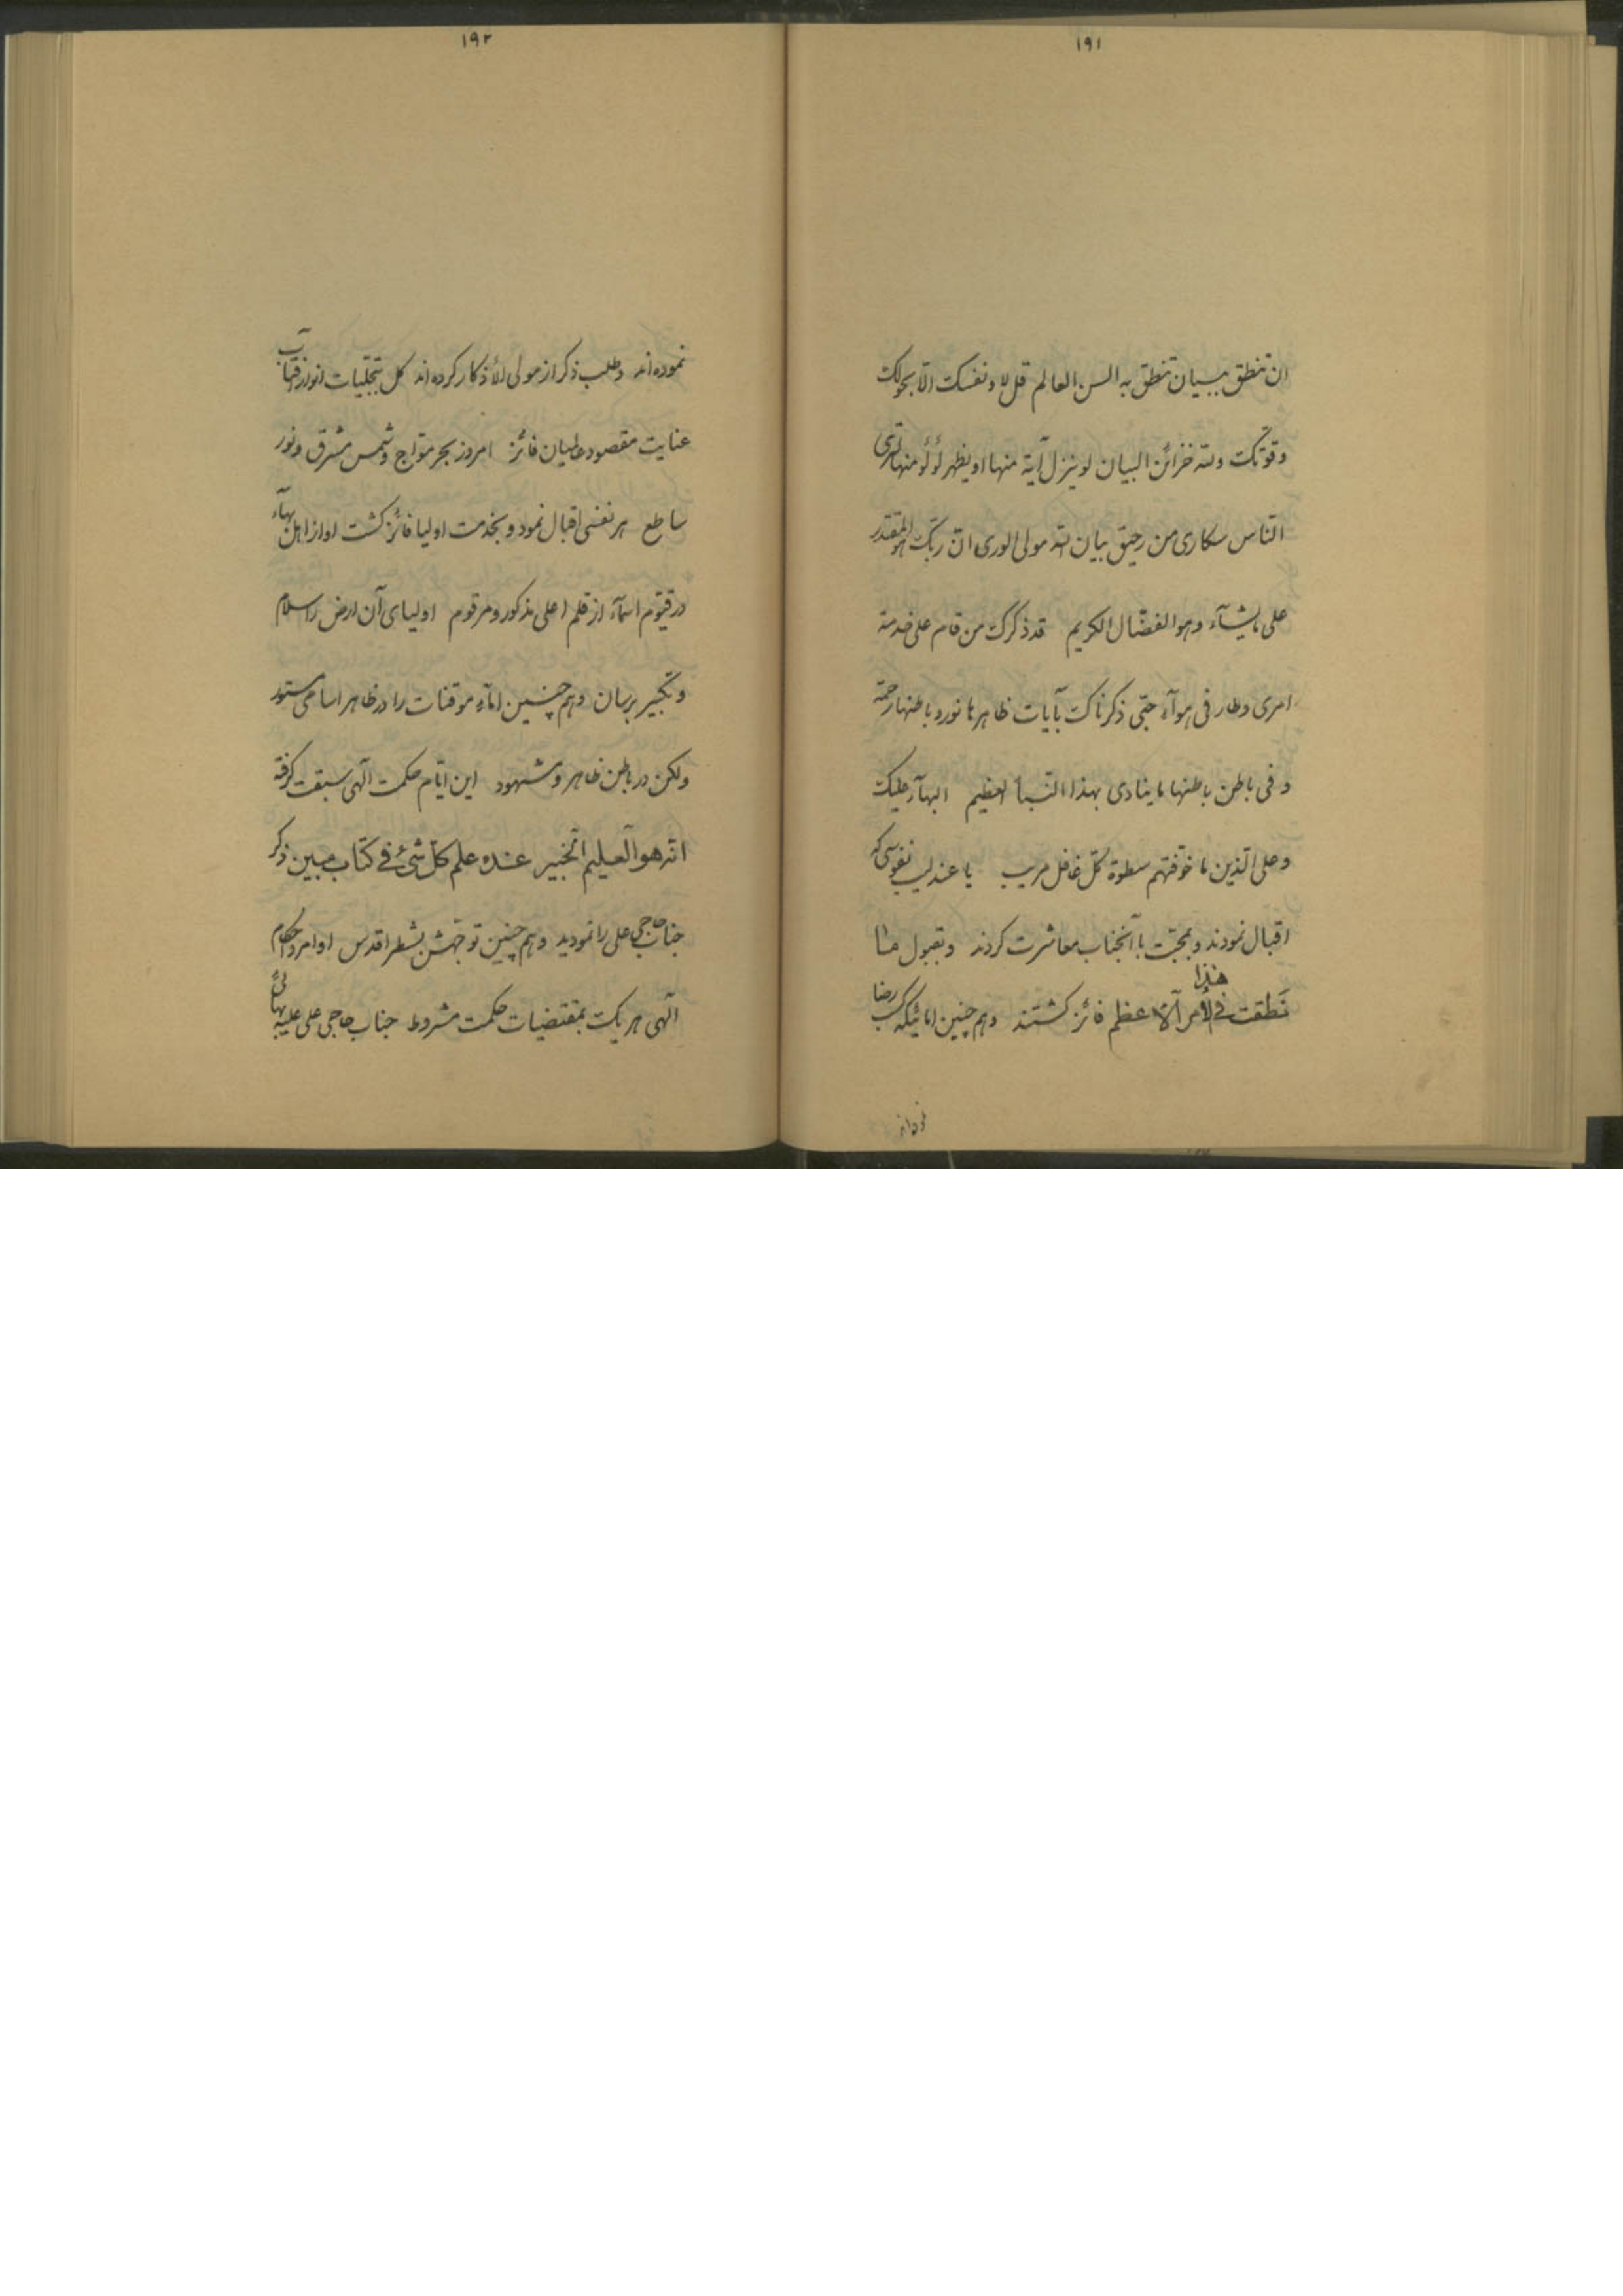 ۱۹۱
ان تنطق ببیان تنطق به السن العالم قل لا و نفسک الّا بحولک
و قوّتک و للّه خزائن البیان لو ینزل آیة منها او یظهر لؤلؤ منها لتری
النّاس سکاری من رحیق بیان اللّه مولی الوری انّ ربّک لهو المقتدر
علی مایشآء و هو الفضّال الکریم قد ذکرک من قام علی خدمة
امری و طار فی هوآء حبّی ذکرناک بآیات ظاهرها نور و باطنها رحمة
و فی باطن باطنها ما ینادی بهذا النّبأ العظیم البهآء علیک
و علی الّذین ما خوّفتهم سطوة کلّ غافل مریب یا عندلیب نفوسی که
اقبال نمودند و بمحبّت با آنجناب معاشرت کردند و بقبول ما
نَطَقت فی هذا الأمر الأعظم فائز کشتند و هم چنین امائیکه کسب رضا
نموده‌اند
۱۹۲
نموده‌اند و طلب ذکر از مولی الأذکار کرده‌اند کل بتجلّیات انوار آفتاب
عنایت مقصود عالمیان فائز امروز بحر موّاج و شمس مشرق و نور
ساطع هر نفسی اقبال نمود و بخدمت اولیا فائز کشت او از اهل بهآء
در قیّوم اسمآء از قلم اعلی مذکور و مرقوم اولیای آن ارض را سلام
و تکبیر برسان و هم چنین امآء موقنات را در ظاهر اسامی مستور
ولکن در باطن ظاهر و مشهود این ایّام حکمت الهی سبقت کرفته
انّه هو العلیم الخبیر عنده علم کلّ شیٔ فی کتاب مبین ذکر
جناب حاجی علی را نمودید و هم چنین توجّهش بشطر اقدس اوامر و احکام
الهی هر یک بمقتضیات حکمت مشروط جناب حاجی علی علیه بهائی